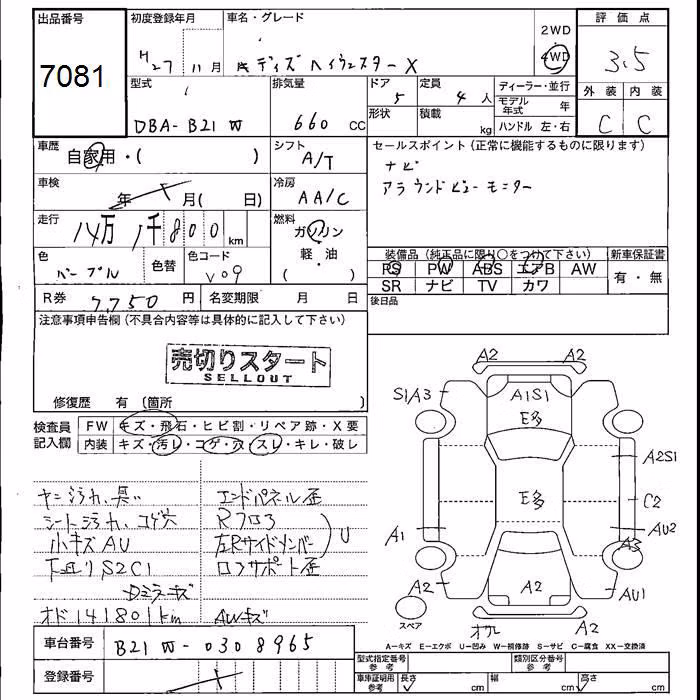 出品番号
7081
初度登録年月
H27年11月
車名・グレード
デイズ ハイウェスターX
2WD
4WD
評価点
3.5
外装 内装
C C
型式
DBA-B21W
排気量
660cc
ドア
5
形状
定員
4人
積載
kg
ディーラー・並行
モデル年式 年
ハンドル 左・右
車歴
自家用・( )
シフト
A/T
セールスポイント(正常に機能するものに限ります)
ナビ
アラウンドビューモニター
車検
年 月( 日)
冷房
AA/C
走行
14万1千800km
燃料
ガソリン
軽・油
( )
色
パープル
色替
色コード
V09
装備品(純正品に限り○をつけて下さい)
PS PW ABS エアB AW
SR ナビ TV カワ
新車保証書
有・無
R券 7,750円
名変期限 月 日
後日品
注意事項申告欄(不具合内容等は具体的に記入して下さい)
売切りスタート
SELLOUT
修復歴 有(箇所
検査員記入欄
FW キズ・飛石・ヒビ割・リペア跡・X要
内装 キズ・汚レ・コゲ・穴・スレ・キレ・破レ
ヤニ汚れ、臭い
シート汚れ、コゲ穴
小キズAU
下廻りS2C1
Dミラーキズ
オド141801km
エンドパネル歪
Rフロア
左RサイドメンバーU
ロアサポート歪
AWキズ
A2 A2
S1A3
A1S1
E多
A2S1
E多
C2
A1
AU2
A3
A2
A2
AU1
スペア
A2
A-キズ E-エクボ U-凹み W-補修跡 S-サビ C-腐食 XX-交換済
車台番号 B21W-0308965
登録番号
型式指定番号 参考
類別区分番号 参考
車庫証明用 参考
長さ cm
幅 cm
高さ cm